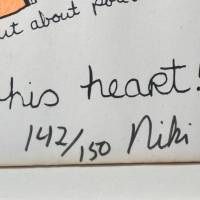 ut about
his heart!
142/150 Niki